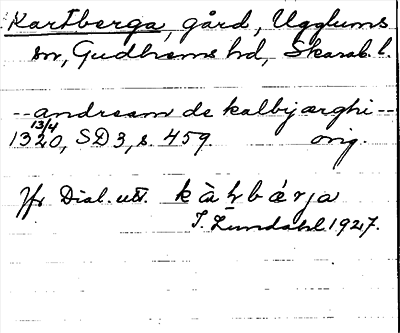 Kartberga, gård, Ugglums
sn, Gudhems hd, Skarab. l.
-- andream de kalbyærghi --
13/4
1320, SD 3, s. 459. orig.
Jfr Dial. utt. kàr̠bǽrja
I. Lundahl 1927.